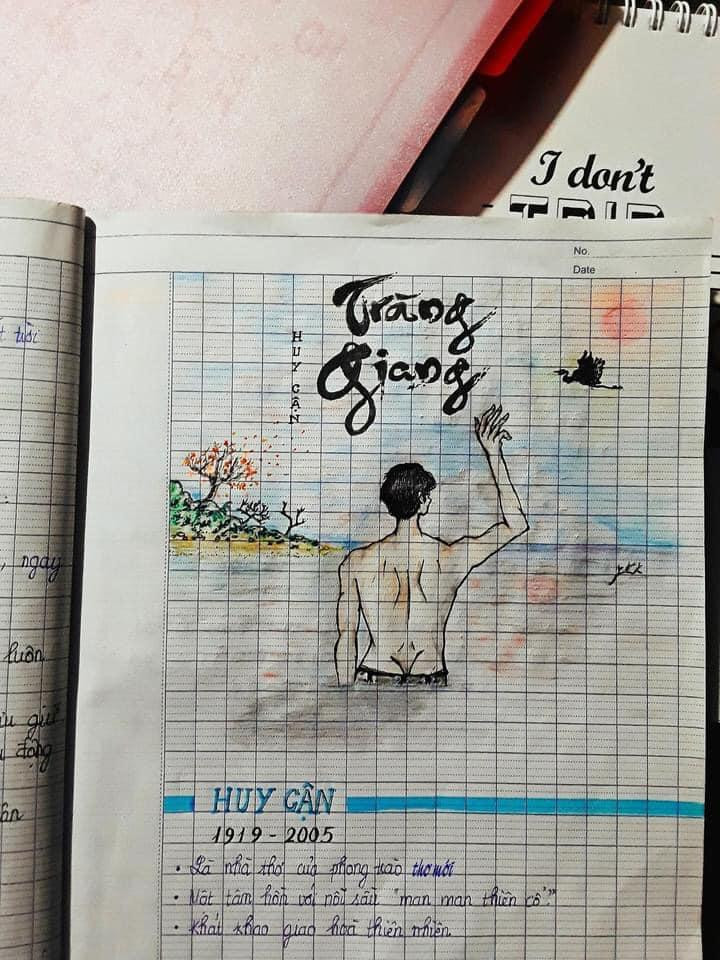 I don't
TRIP
No.
Date
Tràng
Giang
HUY CẬN
ykk
HUY CẬN
1919 - 2005
• Là nhà thơ của phong trào thơ mới
• Một tâm hồn với nỗi sầu "man man thiên cổ."
• Khát khao giao hoà thiên nhiên
tời
, ngay
luôn
giữ
động